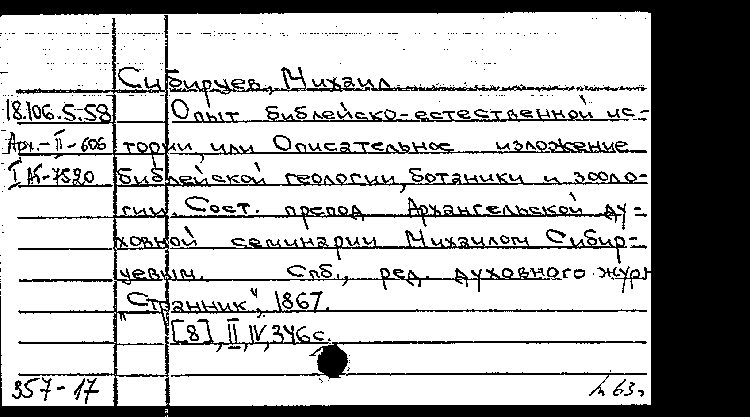 Сибирцев, Михаил
18.106.5.58 Опыт библейско-естественной ис-
Арх.-II-606 тории, или Описательное изложение
I К-7520 библейской геологии, ботаники и зооло-
гии. Сост. препод Архангельской ду-
ховной семинарии Михаилом Сибир-
цевым. Спб., ред. духовного журн
"Странник", 1867.
[8], II, IV, 346 с.
357-17 63